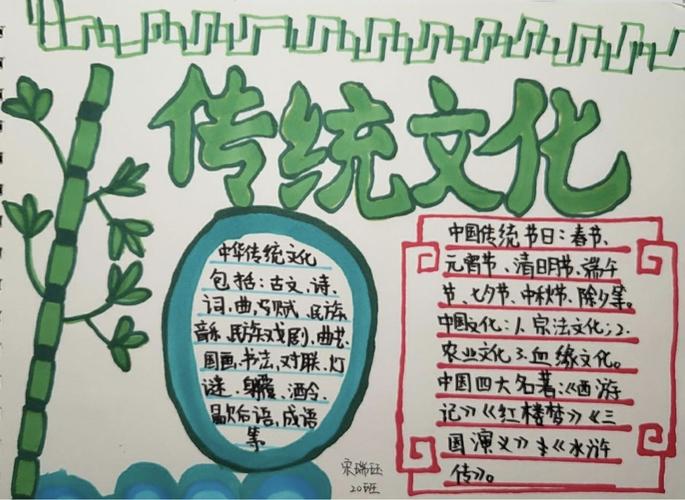 传统文化
中华传统文化
包括:古文、诗、
词、曲、与赋、民族
音乐、民族戏剧、曲艺、
国画、书法、对联、灯
谜、射覆、酒令、
歇后语、成语
等
中国传统节日:春节、
元宵节、清明节、端午
节、七夕节、中秋节、除夕等。
中国文化:1.宗法文化;2.
农业文化3.血缘文化。
中国四大名著:《西游
记》《红楼梦》《三
国演义》《水浒
传》。
宋瑞珏
20班